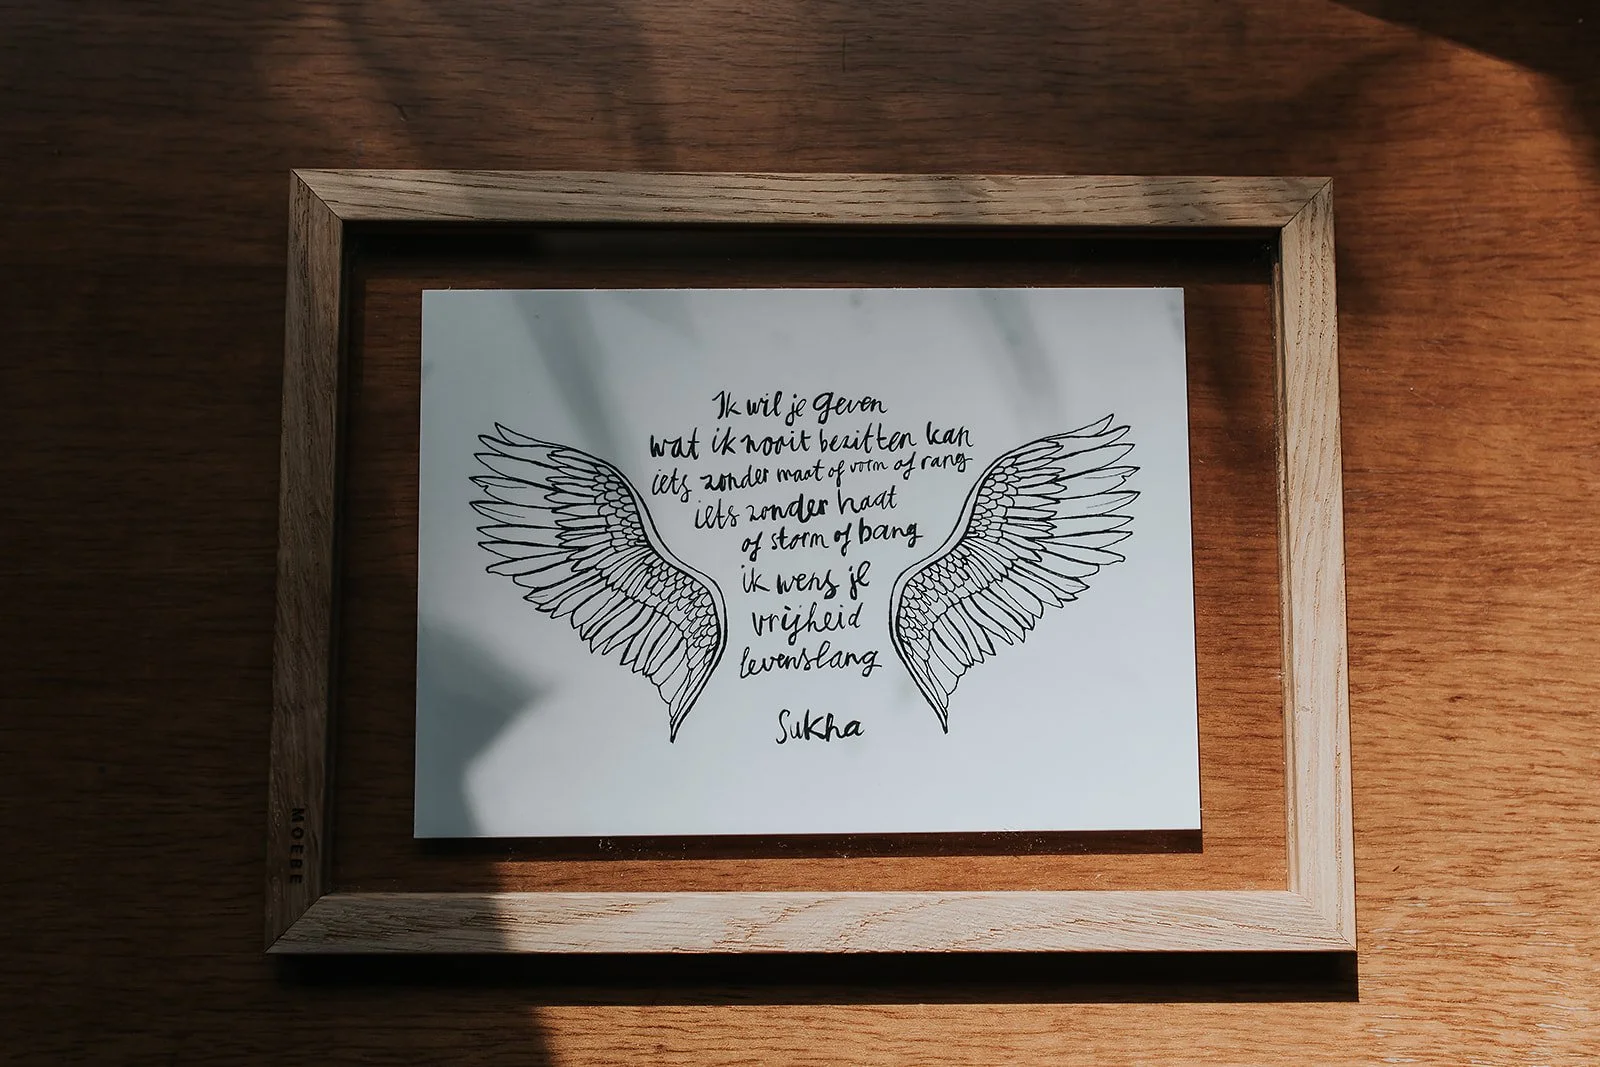 Ik wil je geven
wat ik nooit bezitten kan
iets zonder maat of vorm of rang
iets zonder haat
of storm of bang
ik wens je
vrijheid
levenslang
Sukha
MOEBE